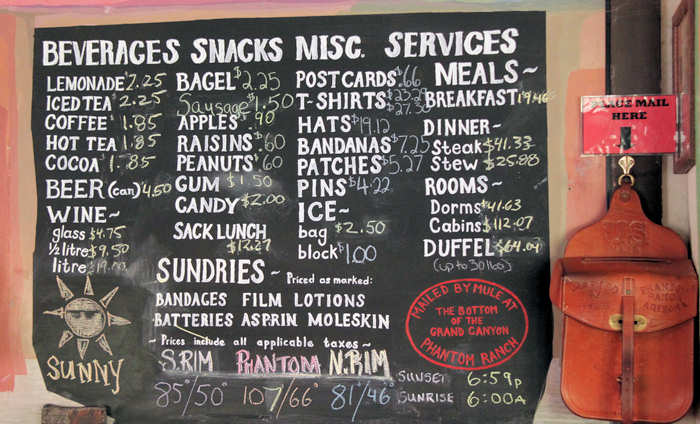 BEVERAGES SNACKS MISC. SERVICES
LEMONADE $2.25
ICED TEA $2.25
COFFEE $1.85
HOT TEA $1.85
COCOA $1.85
BEER (can) $4.50
WINE~
glass $4.75
½ litre $9.50
litre
BAGEL $2.25
Sausage $1.50
APPLES $.90
RAISINS $.60
PEANUTS $.60
GUM $1.50
CANDY $2.00
SACK LUNCH
$12.27
POST CARDS $.66
T-SHIRTS $23.29
$27.50
HATS $19.12
BANDANAS $7.25
PATCHES $5.27
PINS $4.22
ICE~
bag $2.50
block $1.00
MEALS~
BREAKFAST
DINNER~
Steak $41.33
Stew $25.88
ROOMS~
Dorms $41.63
Cabins $112.07
DUFFEL $64.04
(up to 30 lbs)
SUNDRIES~ Priced as marked:
BANDAGES FILM LOTIONS
BATTERIES ASPRIN MOLESKIN
~Prices include all applicable taxes~
S.RIM PHANTOM N.RIM
85°/50° 107°/66° 81°/46°
SUNNY
MAILED BY MULE AT
THE BOTTOM
OF THE
GRAND CANYON
PHANTOM RANCH
SUNSET 6:59P
SUNRISE 6:00A
MAIL
HERE
PHANTOM
RANCH
ARIZONA